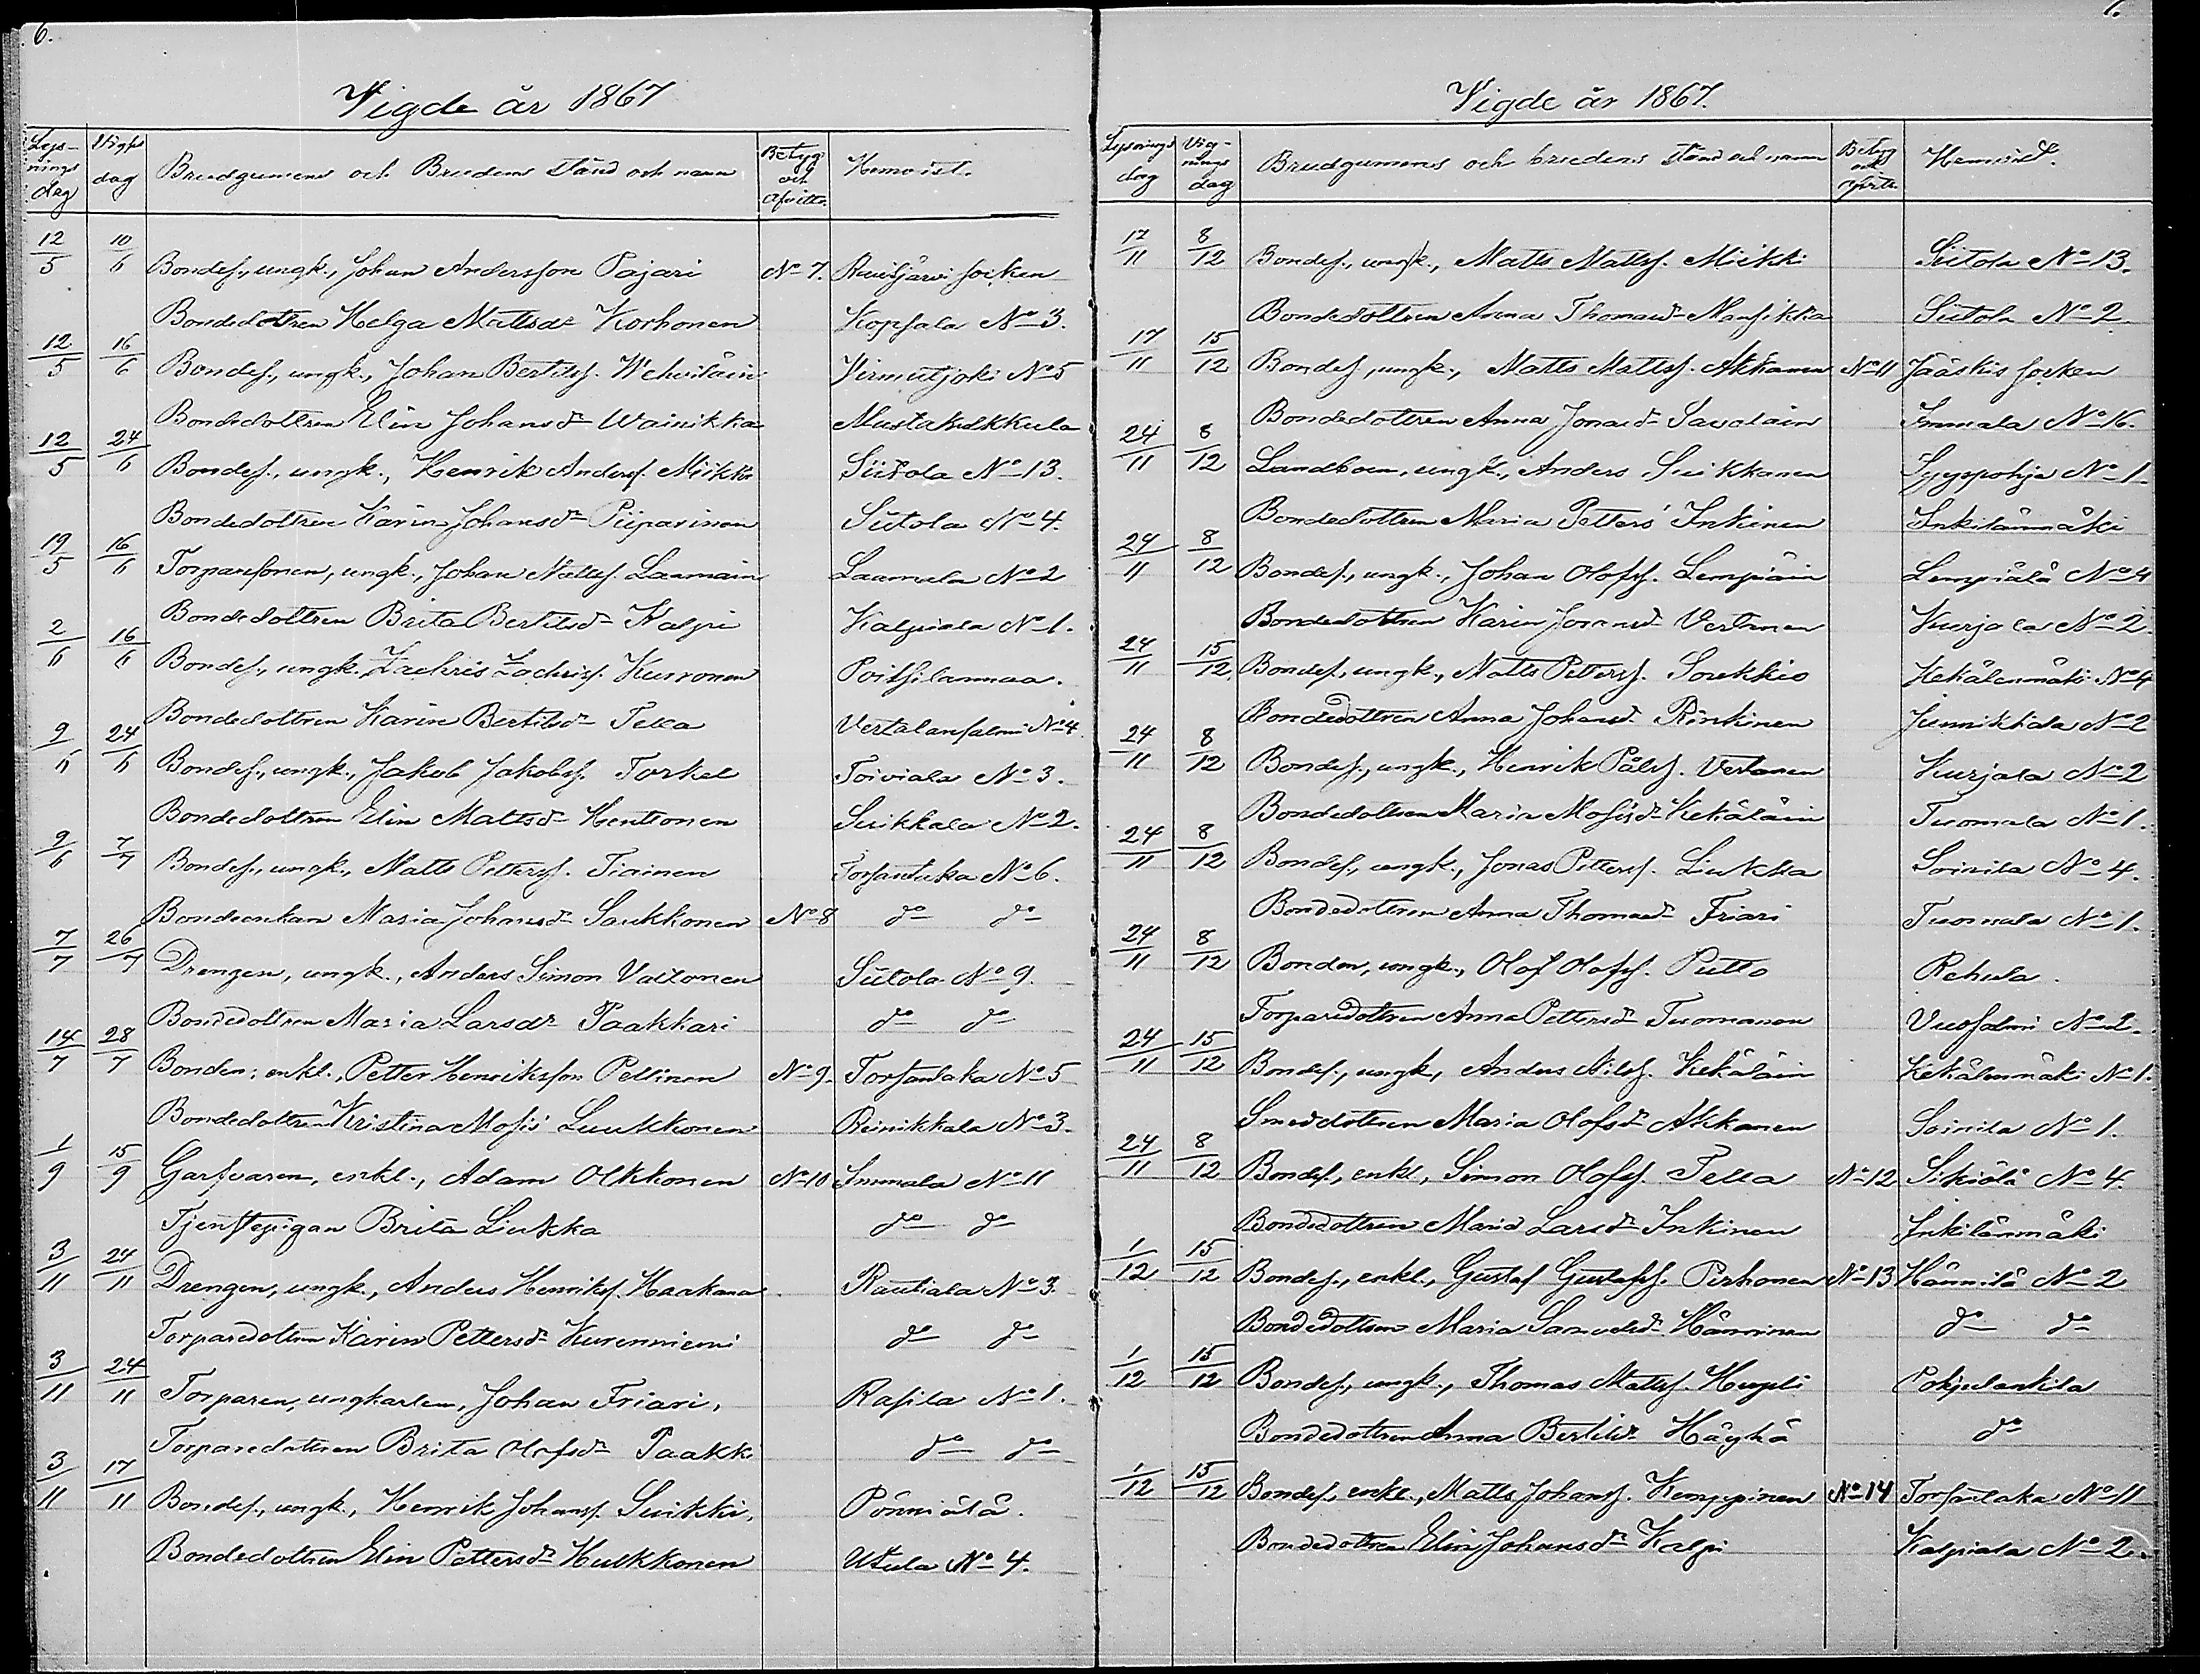 6.
Vigde år 1867
Lysnings dag | Vigs dag | Brudgummens och Brudens stånd och namn | Betyg och afvittr. | Hemvist.
12/5 10/6 Bondes., ungk., Johan Andersson Pajari No 7. Ruisjärvi socken
Bondedottren Helga Mattsdr Korhonen Kopsala No 3.
12/5 16/6 Bondes., ungk., Johan Bertilss. Wehviläin Virmutjoki No 5
Bondedottren Elin Johansdr Wainikka Mustakulkkula
12/5 24/6 Bondes., ungk., Henrik Anderss. Miikki Siitola No 13.
Bondedottren Karin Johansdr Piiparinen Siitola No 4.
19/5 16/6 Torparesonen, ungk., Johan Mattss. Laumain Laumala No 2
Bondedottren Brita Bertilsdr Kalpi Kalpiala No 1.
2/6 16/6 Bondes., ungk. Zachris Zachriss. Kurronen Poitsilanmaa.
Bondedottren Karin Bertilsdr Tella Vertalansalmi No 4.
9/6 24/6 Bondes., ungk., Jakob Jakobss. Torkel Toiviala No 3.
Bondedottren Elin Mattsdr Henttonen Suikkala No 2.
9/6 7/7 Bondes., ungk., Matts Petterss. Tiainen Torsantaka No 6.
Bondeenkan Maria Johansdr Saukkonen No 8 do do
7/7 26/7 Drengen, ungk., Anders Simon Valtonen Siitola No 9.
Bondedottren Maria Larsdr Paakkari do do
14/7 28/7 Bonden, enkl., Petter Henriksson Pellinen No 9. Torsantaka No 5
Bondedottren Kristina Mosis Luukkonen Reinikkala No 3.
1/9 15/9 Garfvaren, enkl., Adam Olkkonen No 10 Immala No 11
Tjenstepigan Brita Liukka do do
3/11 24/11 Drengen, ungk., Anders Henrikss. Haakana Rautiala No 3.
Torparedottren Karin Pettersdr Kurenniemi do do
3/11 24/11 Torparen, ungkarlen, Johan Friari, Rasila No 1.
Torparedottren Brita Olofsdr Paakki do do
3/11 17/11 Bondes., ungk., Henrik Johanss. Suikki, Pönniälä.
Bondedottren Elin Pettersdr Hulkkonen Utula No 4.
7.
Vigde år 1867.
Lysnings dag | Vignings dag | Brudgummens och brudens stånd och namn | Betyg och afvittr. | Hemvist.
17/11 8/12 Bondes., ungk., Matts Mattss. Miikki Siitola No 13.
Bondedottren Anna Thomasdr Mansikka Siitola No 2.
17/11 15/12 Bondes., ungk., Matts Mattss. Akkanen No 11 Jääskis socken
Bondedottren Anna Jonasdr Savolain Immala No 16.
24/11 8/12 Landboen, ungk., Anders Suikkanen Syyspohja No 1.
Bondedottren Maria Petters Inkinen Inkilänmäki
24/11 8/12 Bondes., ungk., Johan Olofss. Lempiäin Lempiälä No 4
Bondedottren Karin Jonasdr Vertanen Kurjala No 2.
24/11 15/12 Bondes., ungk., Matts Petterss. Soukkio Kekälenmäki No 4
Bondedottren Anna Johansdr Rinkinen Junnikkala No 2
24/11 8/12 Bondes., ungk., Henrik Pålss. Vertanen Kurjala No 2
Bondedottren Maria Mosisdr Kekäläin Tuomala No 1.
24/11 8/12 Bondes., ungk., Jonas Petterss. Liukka Soinila No 4.
Bondedottren Anna Thomasdr Friari Tuomala No 1.
24/11 8/12 Bonden, ungk., Olof Olofss. Putto Rehula.
Torparedottren Anna Pettersdr Tuomanen Vuosalmi No 2.
24/11 15/12 Bondes., ungk., Anders Nilss. Kekäläin Kekälenmäki No 1.
Smeddottren Maria Olofsdr Akkanen Soinila No 1.
24/11 8/12 Bondes., enkl., Simon Olofss. Tella No 12 Sikiälä No 4.
Bondedottren Maria Larsdr Inkinen Inkilänmäki
1/12 15/12 Bondes., enkl., Gustaf Gustafss. Pirhonen No 13 Hännilä No 2
Bondedottren Maria Samuelsdr Hänninen do do
1/12 15/12 Bondes., ungk., Thomas Mattss. Hupli Pohjalankila
Bondedottren Anna Bertilsdr Häyhä do
1/12 15/12 Bondes., enkl., Matts Johanss. Kemppinen No 14 Torsantaka No 11
Bondedottren Elin Johansdr Kalpi Kalpiala No 2.